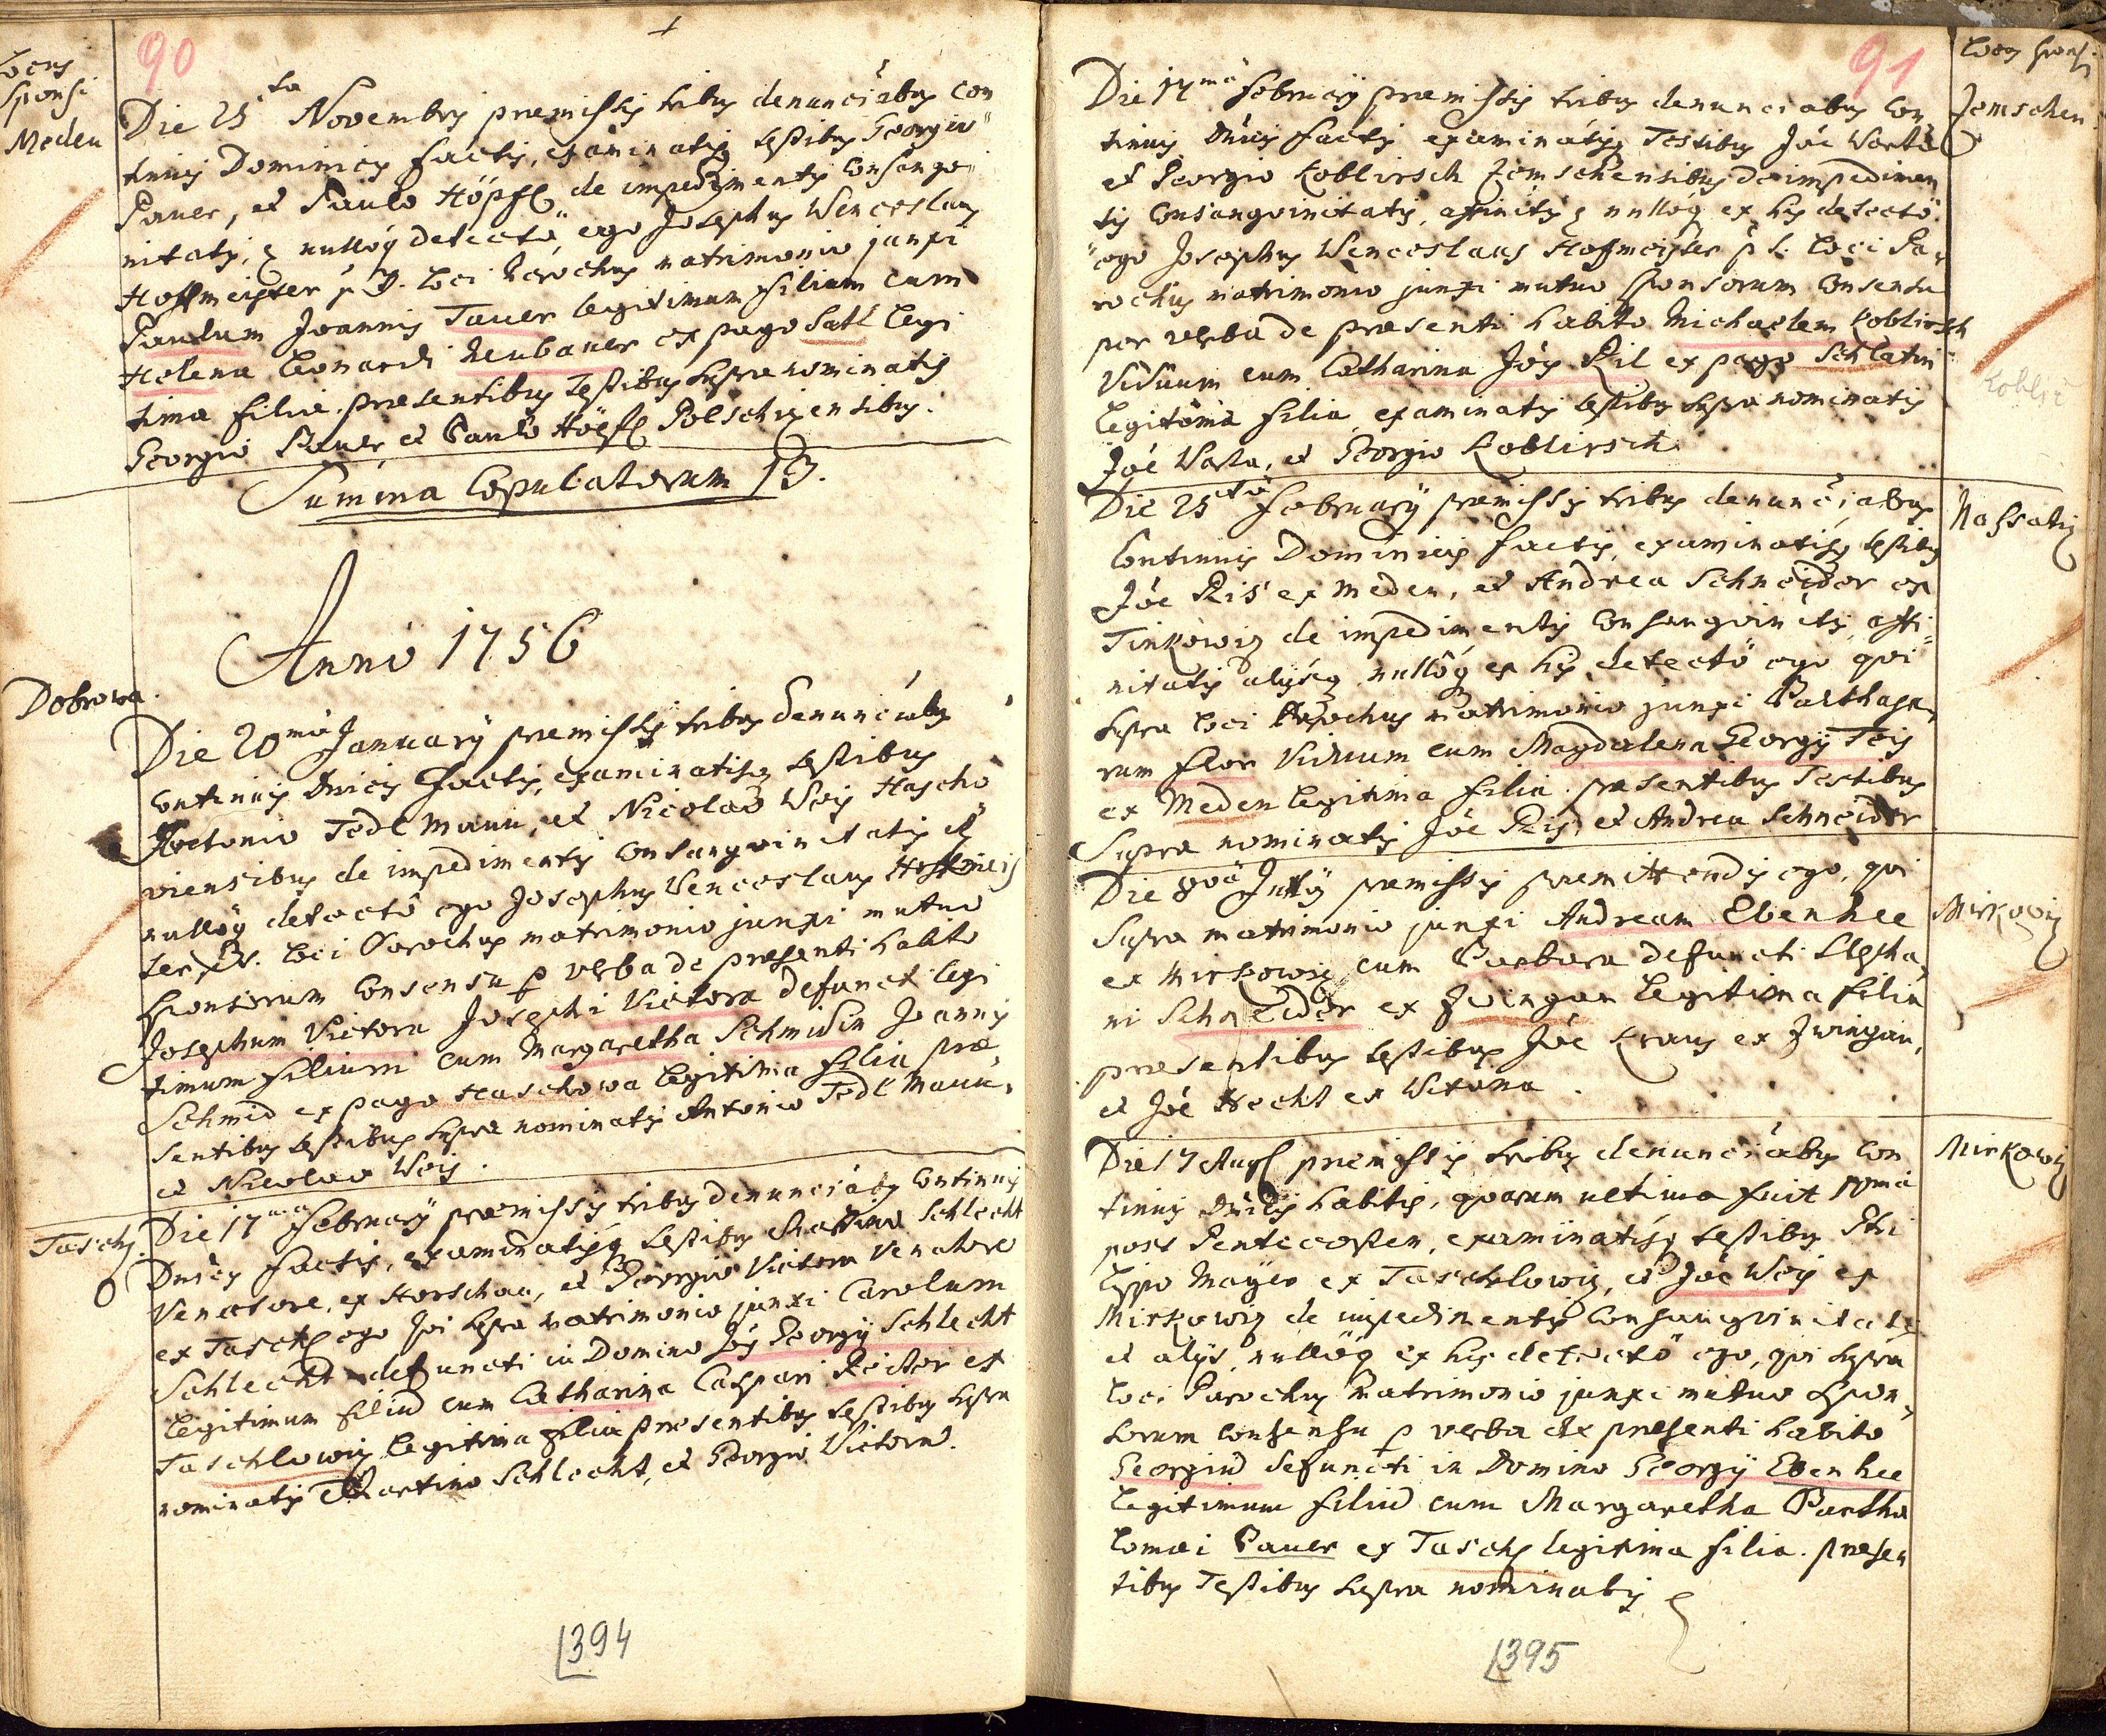 90
Locus
Sponsi
Meden
Die 25ta Novembris praemissis tribus denunciabus con
tinuis Dominicis factis, examinatisq testibus Georgio
Pauer, et Paulo Höpfl de impedimentis consangvi
nitatis, nulloq detecto, ego Josephus Wenceslaus
Hoffmeister p. t. loci Parochus matrimonio junxi
Paulum Joannis Tauer legitimum filium cum
Helena Leonardi Neubauer ex pago Satl legi
tima filia. praesentibus testibus supra nominatis
Georgio Pauer, et Paulo Höpfl Polschizensibus.
Summa Copulatorum 13.
Anno 1756
Dobrowa.
Die 20ma January praemissis tribus denunciabus
continuis Dnicis factis, examinatisq testibus
Antonio Tedlmann, et Nicolao Weis Hascho
viensibus de impedimentis consangvinitatis et
nulloq detecto ego Josephus Wenceslaus Hoffmeis
ter p. t. loci Parochus matrimonio junxi mutuo
sponsorum consensu p verba de praesenti habito
Josephum Victora Josephi Victora defuncti legi
timum filium cum Margaretha Schmidin Joannis
Schmid ex pago Haschowa legitima filia prae
sentibus testibus supra nominatis Antonio Tedlmann,
et Nicolao Weis.
Taschl.
Die 17ma February praemissis tribus denunciabus continuis
Dnicis factis, examinatisq testibus Martino Schlecht
Venatore, ex Horschau, et Georgio Victora Venatore
ex Taschl ego qui supra matrimonio junxi Carolum
Schlecht defuncti in Domino Jois Georgÿ Schlecht
legitimum filiu cum Catharina Caspari Reitter ex
Taschlowiz legitima filia praesentibus testibus supra
nominatis Martino Schlecht, et Georgio Victora.
394
91
Locus sponsi
Jemschen
Die 17ma February praemissis tribus denunciabus con
tinuis Dnicis factis examinatisq Testibus Joe Warta
et Georgio Koblirsch Jemschensibus de impedimen
tis consangvinitatis, affinitatis nulloq ex his detecto
ego Josephus Wenceslaus Hoffmeister p t. loci Pa
rochus matrimonio junxi mutuo sponsorum consensu
per verba de praesenti habito Michaelem Koblirsch
Viduum cum Catharina Jois Ril ex pago Schlatin
legitima filia, examinatis testibus supra nominatis
Joe Warta, et Georgio Koblirsch.
Koblič
Nassatiz
Die 25ta February praemissis tribus denunciabus
continuis Dominicis factis, examinatisq testibus
Joe Ris ex Meden, et Andrea Schneider ex
Tinkowiz de impedimentis consangvinitatis, affi
nitatis alÿsq nulloq ex his detecto ego qui
supra loci Parochus matrimonio junxi Balthasa
rum Flor Viduum cum Magdalena Georgÿ Teis
ex Meden legitima filia. praesentibus Testibus
supra nominatis Joe Ris, et Andrea Schneider.
Mirkowiz
Die 8va Julÿ praemissis praemittendis ego, qui
supra matrimonio junxi Andream Ebenhee
ex Mirkowiz cum Barbara defuncti Stepha
ni Schneider ex Zwingau legitima filia
praesentibus testibus Joe Kraus ex Zwingau,
et Joe Hecht ex Witana.
Mirkowiz
Die 17 Augl praemissis tribus denunciabus con
tinuis Dnicis habitis, quarum ultima fuit 10ma
post Pentecosten, examinatisq testibus Phi
lippo Mayer ex Taschlowiz, et Joe Weis ex
Mirkowiz de impedimentis consangvinitatis
et alÿs, nulloq ex his detecto ego, qui supra
loci Parochus matrimonio junxi mutuo spon
sorum consensu p verba de praesenti habito
Georgiu defuncti in Domino Georgÿ Ebenhee
legitimum filiu cum Margaretha Bartho
lomaei Pauer ex Taschl legitima filia. praesen
tibus Testibus supra nominatis
395